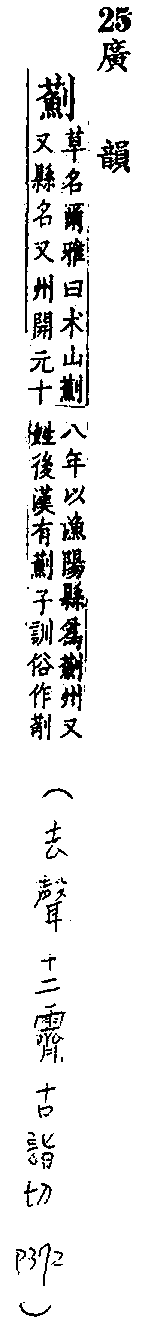 25 廣韻
薊
草名爾雅曰术山薊
又縣名又州開元十
八年以漁陽縣爲薊州又
姓後漢有薊子訓俗作葪
(去聲十二霽古詣切 P372)